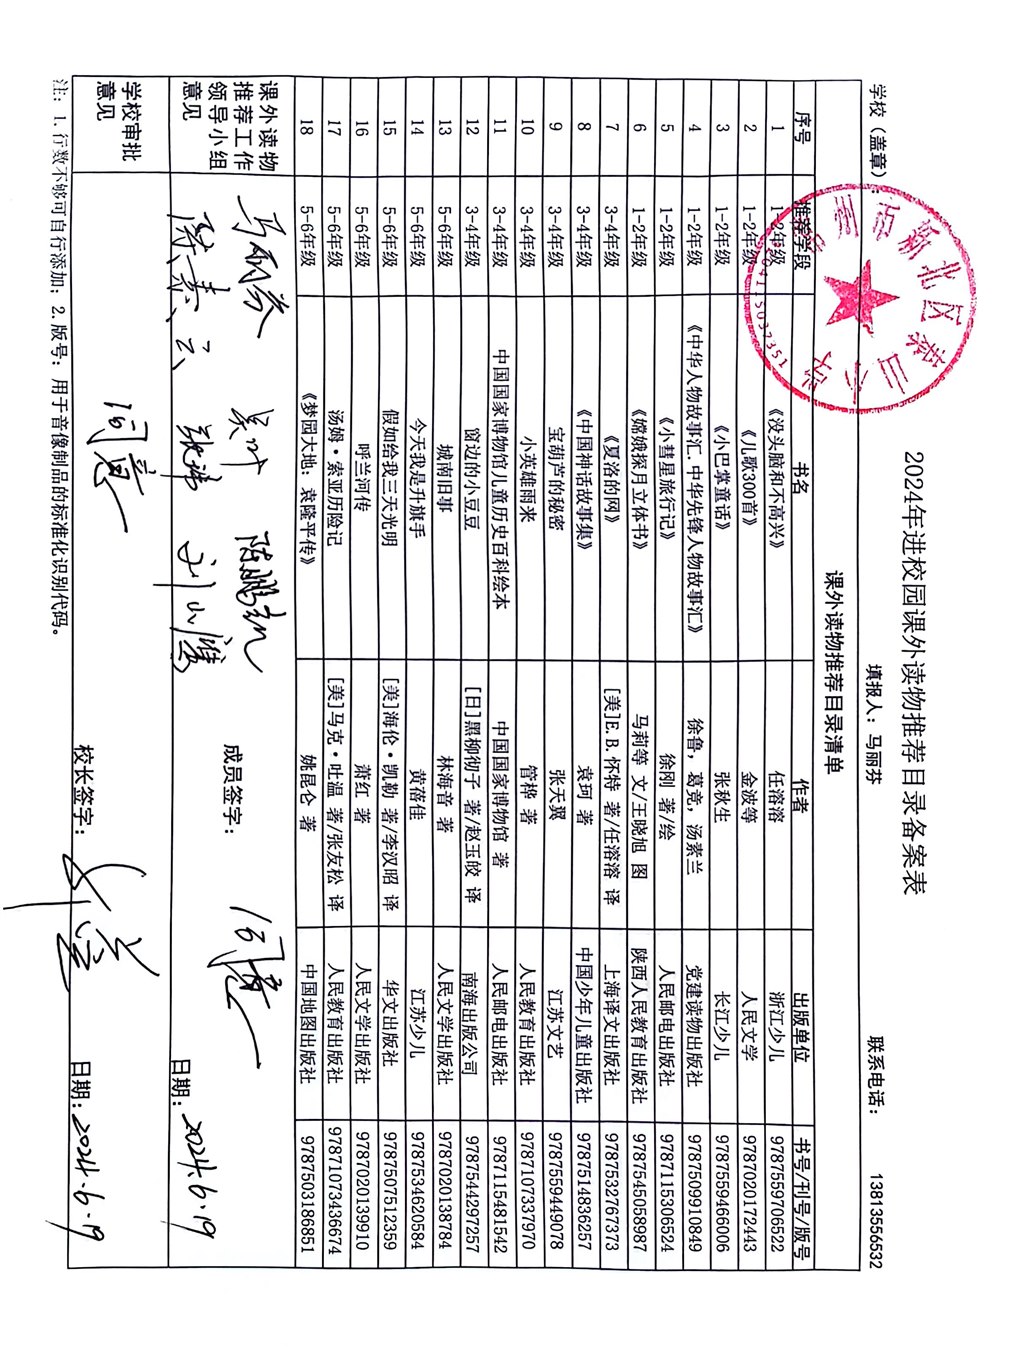 2024年进校园课外读物推荐目录备案表
学校（盖章）： 填报人：马丽芬 联系电话： 13813556532
州市新北区泰山小学
3204115037351
课外读物推荐目录清单
序号 推荐学段 书名 作者 出版单位 书号/刊号/版号
1 1-2年级 《没头脑和不高兴》 任溶溶 浙江少儿 9787559706522
2 1-2年级 《儿歌300首》 金波等 人民文学 9787020172443
3 1-2年级 《小巴掌童话》 张秋生 长江少儿 9787559466006
4 1-2年级 《中华人物故事汇.中华先锋人物故事汇》 徐鲁，葛竞，汤素兰 党建读物出版社 9787509910849
5 1-2年级 《小彗星旅行记》 徐刚 著/绘 人民邮电出版社 9787115306524
6 1-2年级 《嫦娥探月立体书》 马莉等 文/王晓旭 图 陕西人民教育出版社 9787545058987
7 3-4年级 《夏洛的网》 [美]E.B.怀特 著/任溶溶 译 上海译文出版社 9787532767373
8 3-4年级 《中国神话故事集》 袁珂 著 中国少年儿童出版社 9787514836257
9 3-4年级 宝葫芦的秘密 张天翼 江苏文艺 9787559449078
10 3-4年级 小英雄雨来 管桦 著 人民教育出版社 9787107337970
11 3-4年级 中国国家博物馆儿童历史百科绘本 中国国家博物馆 著 人民邮电出版社 9787115481542
12 3-4年级 窗边的小豆豆 [日]黑柳彻子 著/赵玉皎 译 南海出版公司 9787544297257
13 5-6年级 城南旧事 林海音 著 人民文学出版社 9787020138784
14 5-6年级 今天我是升旗手 黄蓓佳 江苏少儿 9787534620584
15 5-6年级 假如给我三天光明 [美]海伦·凯勒 著/李汉昭 译 华文出版社 9787507512359
16 5-6年级 呼兰河传 萧红 著 人民文学出版社 9787020139910
17 5-6年级 汤姆·索亚历险记 [美]马克·吐温 著/张友松 译 人民教育出版社 9787107343​6674
18 5-6年级 《梦园大地：袁隆平传》 姚昆仑 著 中国地图出版社 9787503186851
课外读物推荐工作领导小组意见
马丽芬 吴叶
张涛
成员签字：
日期：2024.6.19
学校审批意见
同意
校长签字：
日期：2024.6.19
注：1.行数不够可自行添加；2.版号：用于音像制品的标准化识别代码。